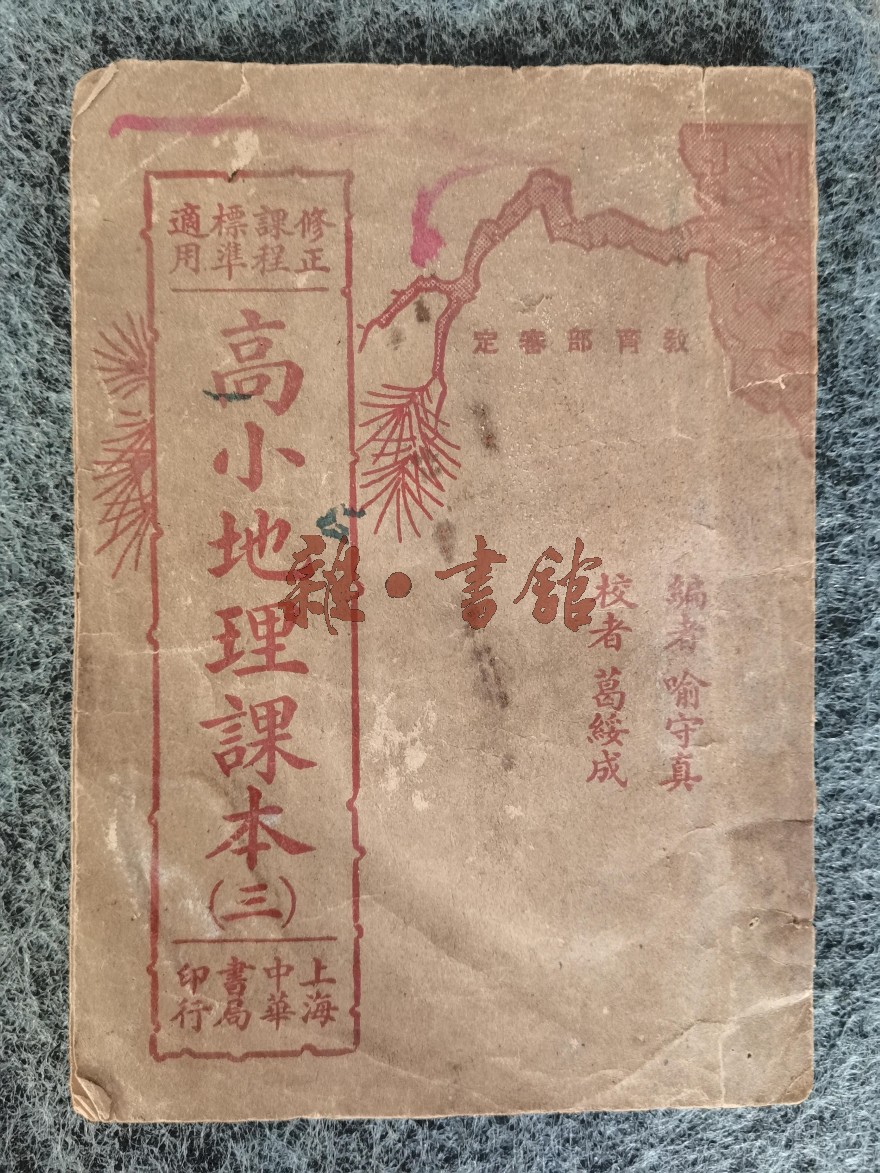 教育部審定
編者 喻守真
校者 葛綏成
修正
課程
標準
適用
高小地理課本(三)
上海
中華
書局
印行
雜·書館